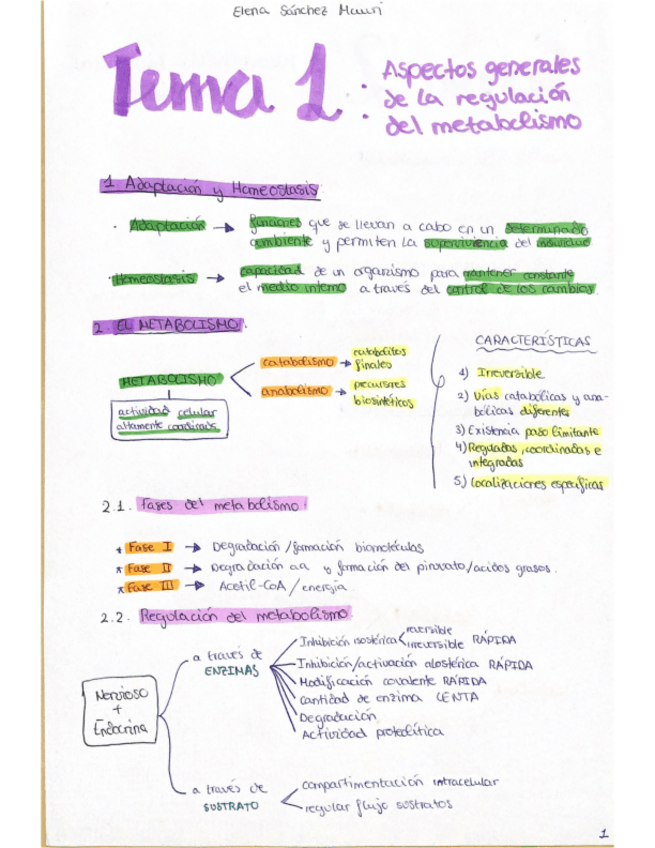 Elena Sánchez Mauri
Tema 1: Aspectos generales
de la regulación
del metabolismo
1 Adaptación y Homeostasis
· Adaptación → funciones que se llevan a cabo en un determinado
ambiente y permiten la supervivencia del individuo
· Homeostasis → capacidad de un organismo para mantener constante
el medio interno a través del control de los cambios.
2. EL METABOLISMO.
METABOLISMO
actividad celular
altamente coordinada
catabolismo → catabolitos
finales
anabolismo → precursores
biosintéticos
CARACTERÍSTICAS
1) Irreversible
2) Vías catabólicas y ana-
bólicas diferentes
3) Existencia paso limitante
4) Reguladas, coordinadas e
integradas
5) Localizaciones específicas
2.1. Fases del metabolismo.
* Fase I → Degradación/formación biomoléculas
* Fase II → Degradación aa y formación del piruvato/acidos grasos.
* Fase III → Acetil-CoA / energía
2.2. Regulación del metabolismo
Nervioso
+
Endocrina
a través de
ENZIMAS
Inhibición isostérica reversible
irreversible RÁPIDA
Inhibición/activación alostérica RÁPIDA
Modificación covalente RÁPIDA
Cantidad de enzima LENTA
Degradación
Actividad proteolítica
a través de
SUSTRATO
compartimentación intracelular
regular flujo sustratos
1